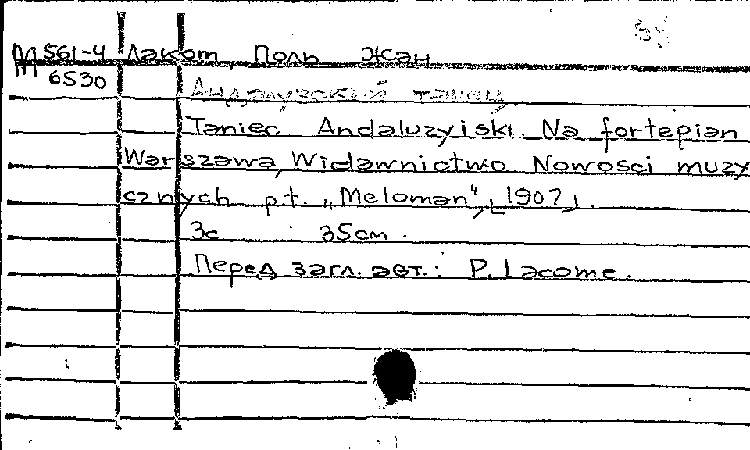 М 561-4 Лаком, Поль Жан
6530
Андалузский танец
Taniec Andaluzyiski. Na fortepian
Warszawa, Widawnictwo Nowosci muzy
cznych p.t. „Meloman", [1907].
3с 35см.
Перед загл. авт.: P. Lacome.